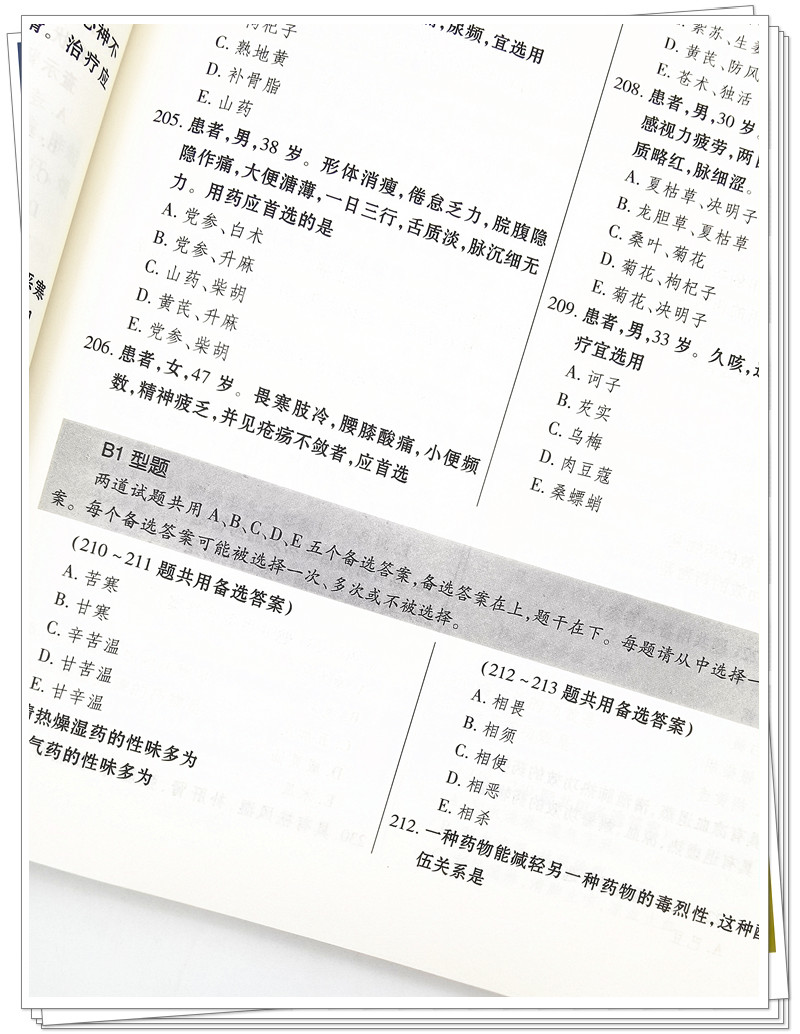 心神不
治疗应
尿频,宜选用
枸杞子
C. 熟地黄
D. 补骨脂
E. 山药
205. 患者,男,38 岁。形体消瘦,倦怠乏力,脘腹隐
隐作痛,大便溏薄,一日三行,舌质淡,脉沉细无
力。用药应首选的是
A. 党参、白术
B. 党参、升麻
C. 山药、柴胡
D. 黄芪、升麻
E. 党参、柴胡
206. 患者,女,47 岁。畏寒肢冷,腰膝酸痛,小便频
数,精神疲乏,并见疮疡不敛者,应首选
紫苏、生姜
D. 黄芪、防风
E. 苍术、独活
208. 患者,男,30 岁。
感视力疲劳,两目
质略红,脉细涩。
A. 夏枯草、决明子
B. 龙胆草、夏枯草
C. 桑叶、菊花
D. 菊花、枸杞子
E. 菊花、决明子
209. 患者,男,33 岁。久咳,
疗宜选用
A. 诃子
B. 芡实
C. 乌梅
D. 肉豆蔻
E. 桑螵蛸
B1 型题
两道试题共用 A、B、C、D、E 五个备选答案,备选答案在上,题干在下。每题请从中选择一
案。每个备选答案可能被选择一次、多次或不被选择。
(210～211 题共用备选答案)
A. 苦寒
B. 甘寒
C. 辛苦温
D. 甘苦温
E. 甘辛温
清热燥湿药的性味多为
气药的性味多为
(212～213 题共用备选答案)
A. 相畏
B. 相须
C. 相使
D. 相恶
E. 相杀
212. 一种药物能减轻另一种药物的毒烈性,这种配
伍关系是